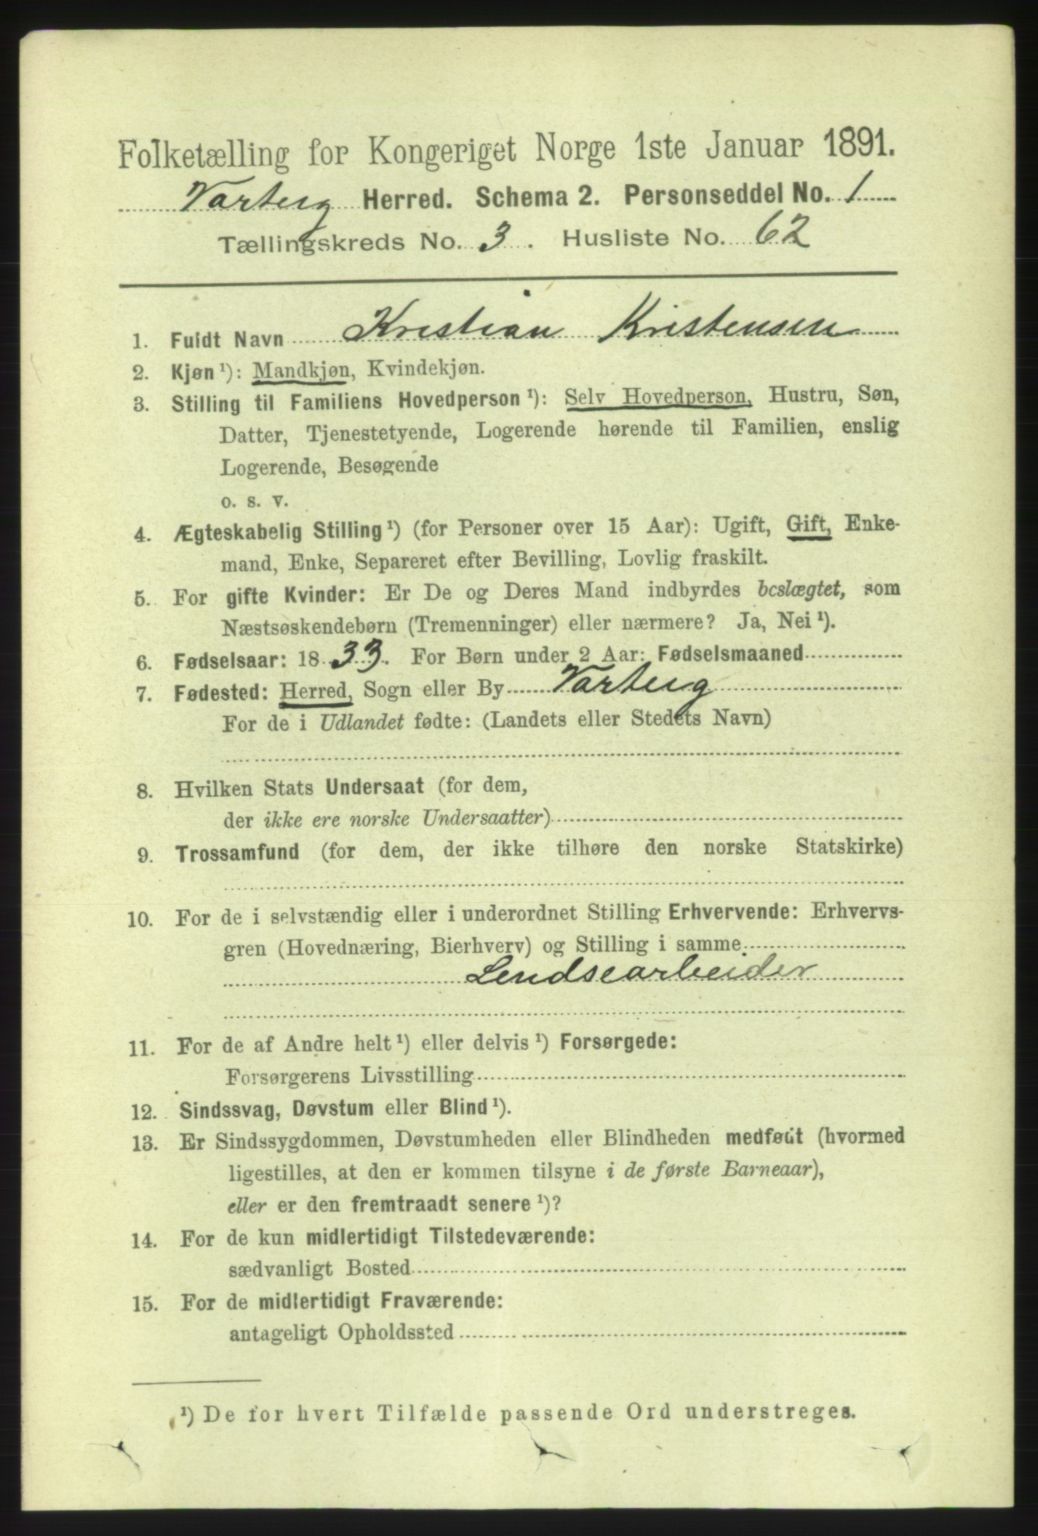 Folketælling for Kongeriget Norge 1ste Januar 1891.
Varteig Herred. Schema 2. Personseddel No. 1
Tællingskreds No. 3. Husliste No. 62
1. Fuldt Navn Kristian Kristensen
2. Kjøn ¹): Mandkjøn, Kvindekjøn.
3. Stilling til Familiens Hovedperson ¹): Selv Hovedperson, Hustru, Søn,
Datter, Tjenestetyende, Logerende hørende til Familien, enslig
Logerende, Besøgende
o. s. v.
4. Ægteskabelig Stilling ¹) (for Personer over 15 Aar): Ugift, Gift, Enke-
mand, Enke, Separeret efter Bevilling, Lovlig fraskilt.
5. For gifte Kvinder: Er De og Deres Mand indbyrdes beslægtet, som
Næstsøskendebørn (Tremenninger) eller nærmere? Ja, Nei ¹).
6. Fødselsaar: 1833. For Børn under 2 Aar: Fødselsmaaned
7. Fødested: Herred, Sogn eller By Varteig
For de i Udlandet fødte: (Landets eller Stedets Navn)
8. Hvilken Stats Undersaat (for dem,
der ikke ere norske Undersaatter)
9. Trossamfund (for dem, der ikke tilhøre den norske Statskirke)
10. For de i selvstændig eller i underordnet Stilling Erhvervende: Erhvervs-
gren (Hovednæring, Bierhverv) og Stilling i samme
Lendsearbeider
11. For de af Andre helt ¹) eller delvis ¹) Forsørgede:
Forsørgerens Livsstilling
12. Sindssvag, Døvstum eller Blind ¹).
13. Er Sindssygdommen, Døvstumheden eller Blindheden medfødt (hvormed
ligestilles, at den er kommen tilsyne i de første Barneaar),
eller er den fremtraadt senere ¹)?
14. For de kun midlertidigt Tilstedeværende:
sædvanligt Bosted
15. For de midlertidigt Fraværende:
antageligt Opholdssted
¹) De for hvert Tilfælde passende Ord understreges.